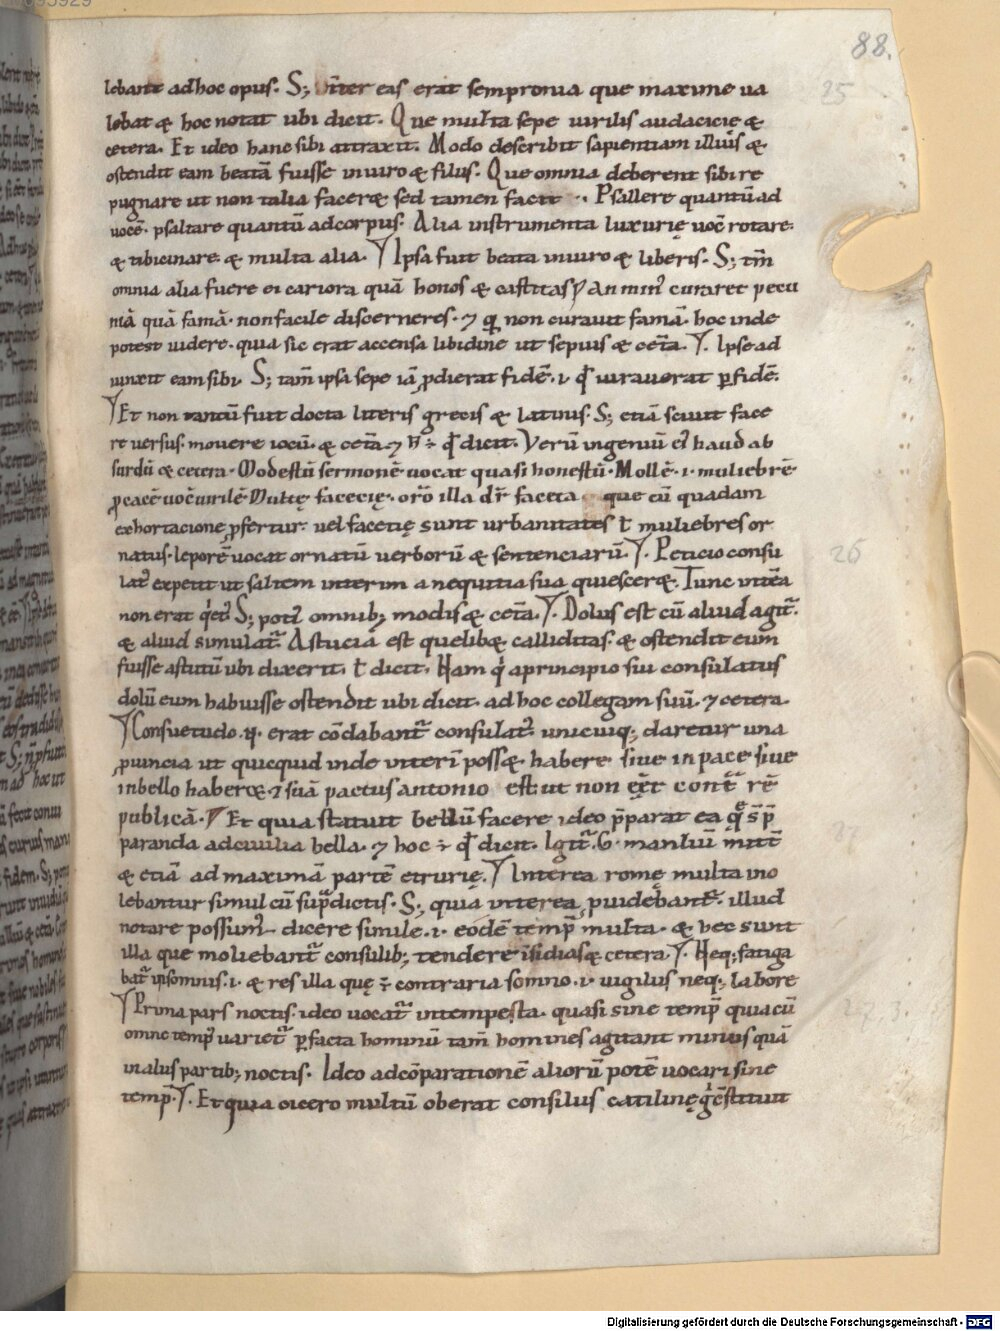 88.
lebant adhoc opus. S; inter eas erat sempronia que maxime ua
25
lebat & hoc notat ubi dicit. Que multa sepe uirilis audacicie &
cetera. Et ideo hanc sibi attraxit. Modo describit sapientiam illius &
ostendit eam beatā fuisse inuiro & filiis. Que omnia deberent sibi re
pugnare ut non talia facer& sed tamen facit. Psallere quantū ad
uocē. psaltare quantū adcorpus. Alia instrumenta luxurię uoc̄ rotare.
& tibicinare. & multa alia. Ipsa fuit beata inuiro & liberis. S; tm̄
omnia alia fuere ei cariora quā honos & castitas An min' curaret pecu
niā quā famā. nonfacile discerneres. ⁊ qđ non curauit famā. hoc inde
potest uidere. quia sic erat accensa libidine ut sepius & cet̄a. Ipse ad
iunxit eam sibi. S; tam̄ ipsa sepe iā ꝓdierat fidē. i. qđ iurauerat ꝑfidē.
Et non tantū fuit docta literis grecis & latinis. S; etiā sciuit face
re uersus. mouere iocū. & cet̄a ⁊ h̄ ÷ qđ dicit. Verū ingeniū ei' haud ab
surdū & cetera. Modestū sermonē uocat quasi honestū. Mollē. i. muliebrē.
ꝓcacē uoc̄ uirilē. Multę facecię. or̄o illa dr̄ faceta que cū quadam
exhortacione ꝓfertur. uel facetię sunt urbanitates ł muliebres or
natus. leporē uocat ornatū uerborū & sentenciarū. Peticio consu
26
lat' expetit ut saltem interim a nequitia sua quiescer&. Tunc int̄ea
non erat q'et' S; pot' omnib; modis & cet̄a. Dolus est cū aliud agit̄.
& aliud simulat̄. Astucia est quelib& calliditas. & ostendit eum
fuisse astutū ubi dixerit. ł dicit. Nam q' aprincipio sui consulatus
dolū eum habuisse ostendit ubi dicit. ad hoc collegam suū. ⁊ cetera.
Consuetudo. n. erat cōdabant̄ consulat' unicuiq; daretur una
ꝓuincia ut quicquid inde inter̄i poss& habere siue in pace siue
inbello haber& ⁊ suā pactus antonio est ut non e͞et cont̄ rē
publicā. Et quia statuit bellū facere ideo p̄parat ea
paranda adciuilia bella. ⁊ hoc ÷ qđ dicit. Igit̄. G. manliū mitt̄
27
& etiā ad maximā partē etrurię. Interea romę multa mo
lebantur simul cū sup̄dictis. S; quia interea ꝓuidebant̄. illud
notare possum' dicere simile. i. eodē temp̄ multa. & hec sunt
illa que moliebant̄ consulib; tendere īsidias & cetera. Neq; fatiga
bat̄ insomnis. i. & res illa quę ÷ contraria somno. i. uigiliis neq; labore
27,3.
Prima pars noctis. ideo uocat̄ intempesta. quasi sine temp̄ quia cū
omne temp' uariet̄ ꝑ facta hominū tam̄ homines agitant minus quā
inaliis partib; noctis. Ideo adcōparationē aliorū potē uocari sine
temp̄. Et quia cicero multū oberat consiliis catilinę
Digitalisierung gefördert durch die Deutsche Forschungsgemeinschaft - DFG